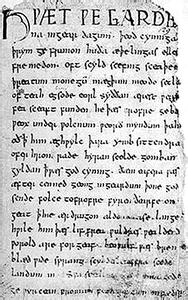 HǷÆT ǷE GARDE
na ingear dagum. þeod cyninga
þrym ge frunon huða æþelingas elle
fremedon. oft scyld scefing sceaþe
þreatum monegū mægþum meodo setla
of teah egsode eorl syððan ærest ƿear
fea sceaft funden he þæs frofre geba
ƿeox under ƿolcnum ƿeorð myndum þah
oð him æghƿylc þara ymb sittendra
ofer hron rade hyran scolde gomban
gyldan þæt ƿæs god cyning. ðæm eafera ƿæs
æfter cenned geong ingeardum þone god
sende folce tofrofre fyren ðearfe on
geat þ hie ær drugon aldor ase. lange
hƿile him þæs lif frea ƿuldres ƿealdend
ƿorold are for geaf. beoƿulf ƿæs breme
blæd ƿide sprang scyldes eafera scede
landum in.
ge ƿyrcean fromum feoh giftum